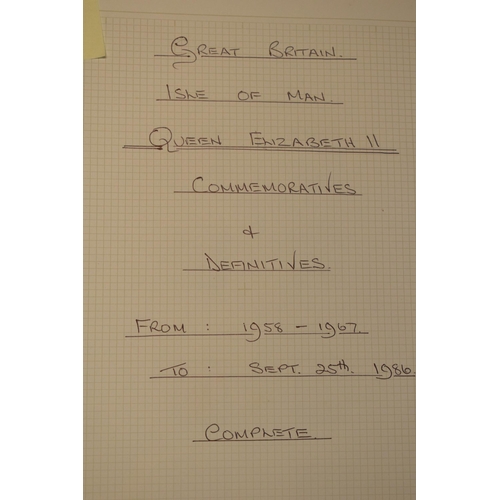 GREAT BRITAIN.
ISLE OF MAN.
QUEEN ELIZABETH II
COMMEMORATIVES
&
DEFINITIVES.
FROM : 1958 - 1967.
TO : SEPT. 25th. 1986.
COMPLETE.